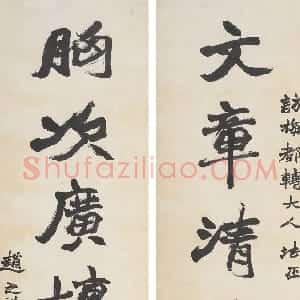 訪梅都轉大人 法正
文章清
胸次廣
趙之
Shufaziliao.com